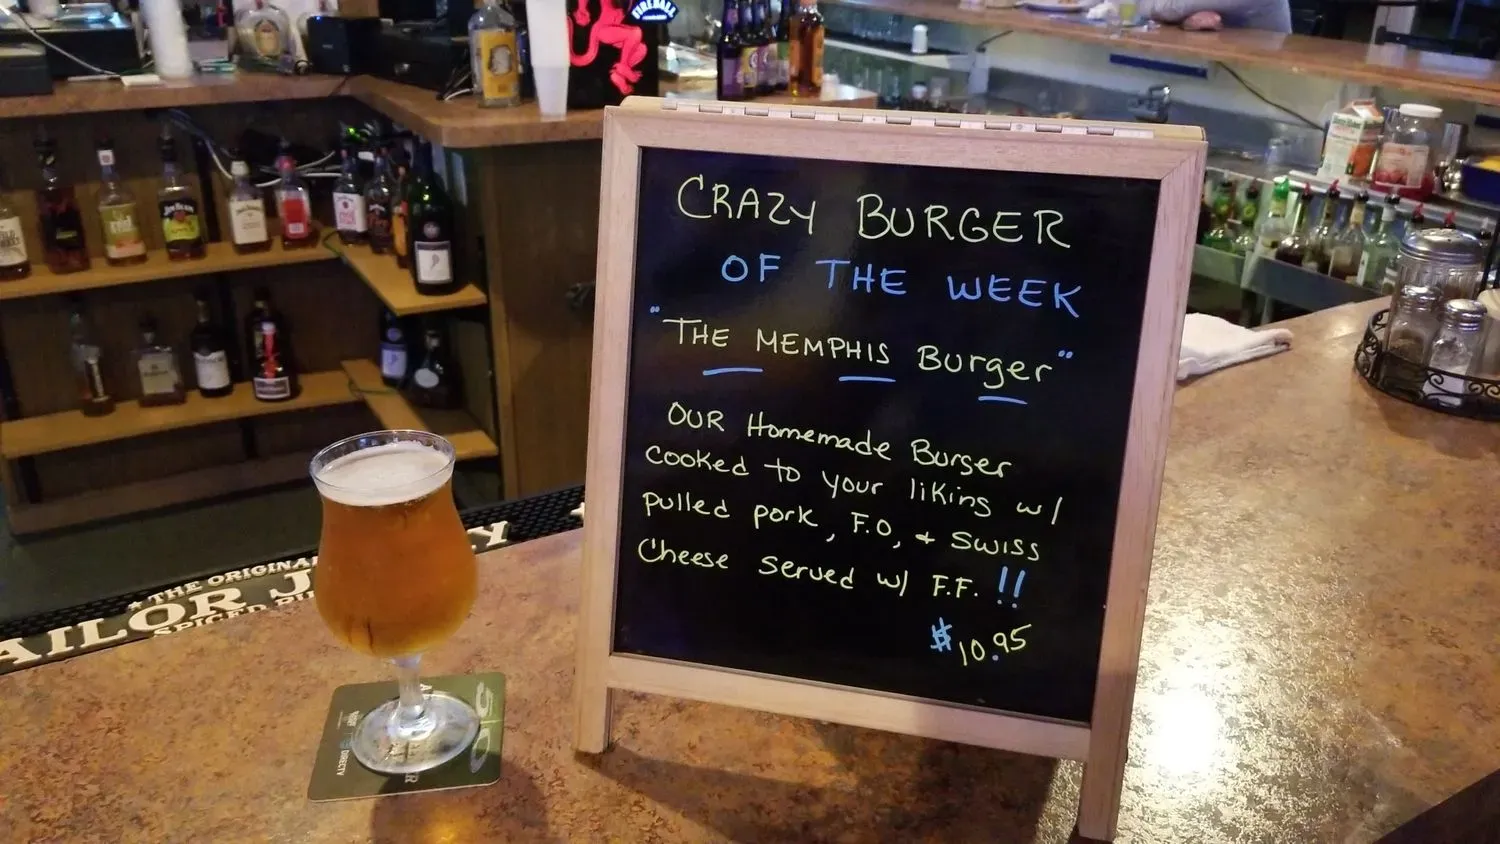 CRAZY BURGER
OF THE WEEK
"THE MEMPHIS Burger"
OUR Homemade Burger
cooked to your liking w/
pulled pork, F.O, + SWISS
Cheese served w/ F.F. !!
$10.95
FIREBALL
JIM BEAM
THE ORIGINAL
AILOR J
SPICED RU
DIRECTV